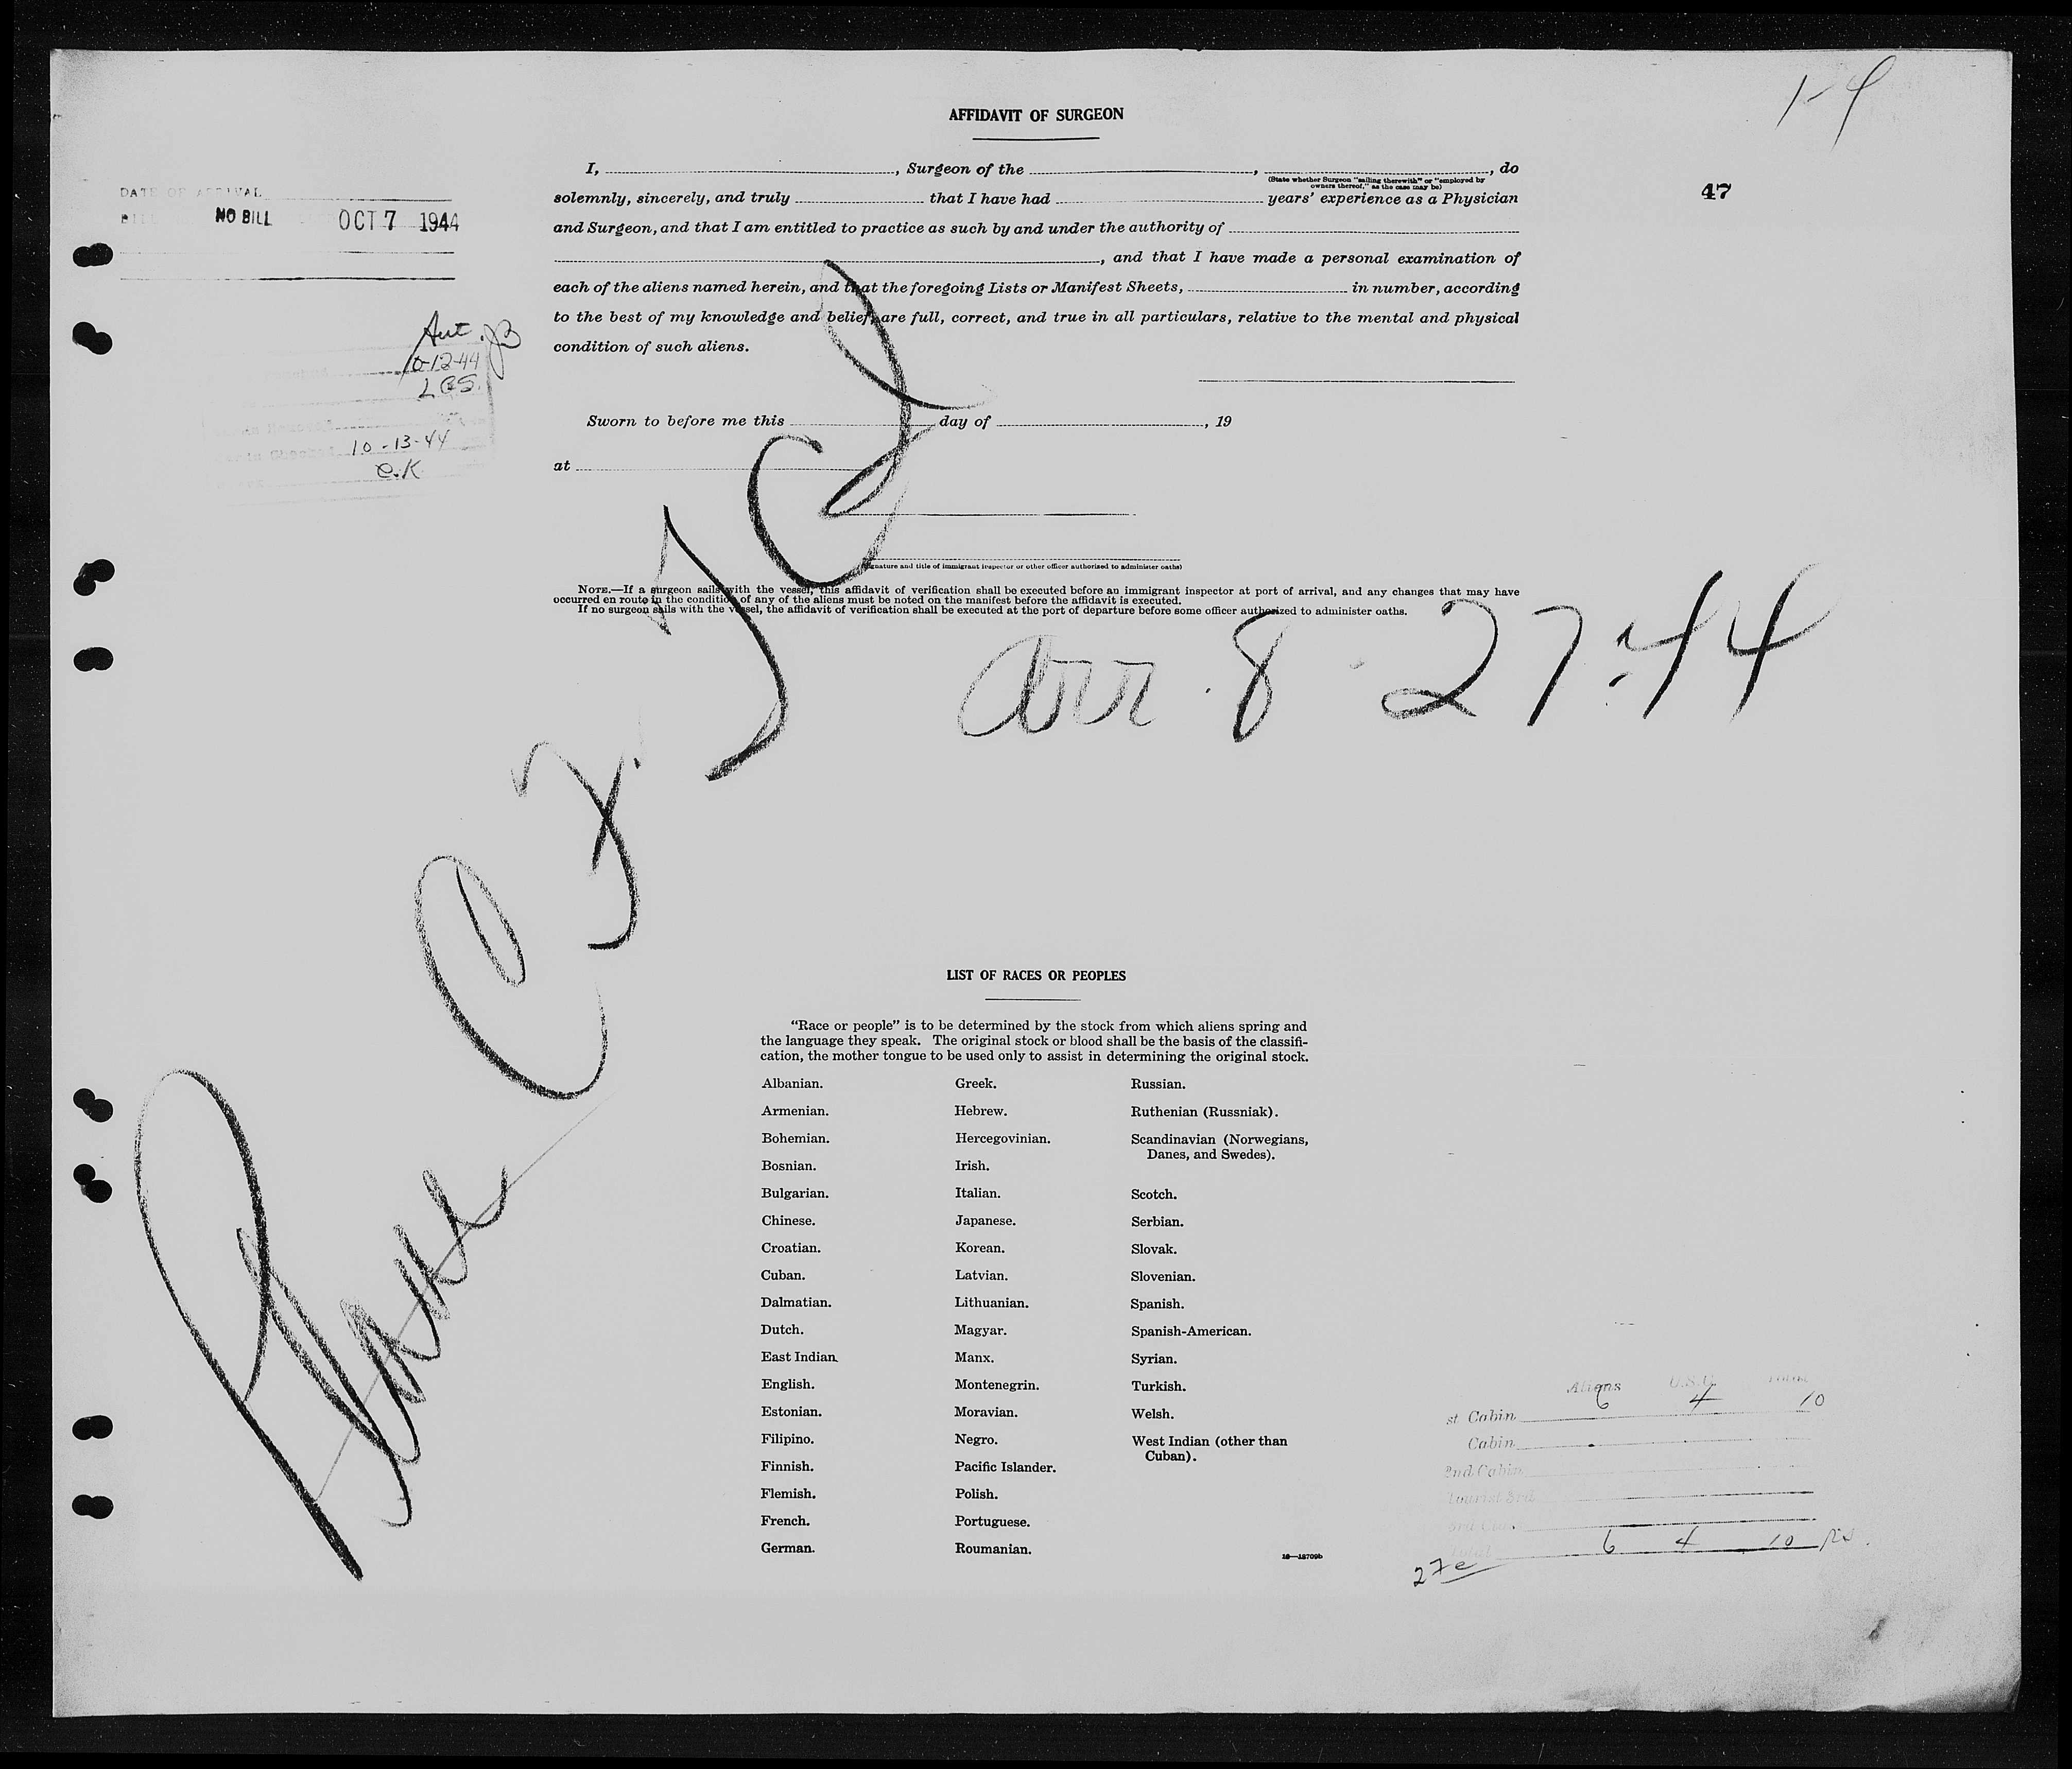 1-4
AFFIDAVIT OF SURGEON
I, , Surgeon of the , , do
(State whether Surgeon "sailing therewith" or "employed by
owners thereof," as the case may be)
47
solemnly, sincerely, and truly that I have had years' experience as a Physician
and Surgeon, and that I am entitled to practice as such by and under the authority of
, and that I have made a personal examination of
each of the aliens named herein, and that the foregoing Lists or Manifest Sheets, in number, according
to the best of my knowledge and belief, are full, correct, and true in all particulars, relative to the mental and physical
condition of such aliens.
Sworn to before me this day of , 19
at
(Signature and title of immigrant inspector or other officer authorized to administer oaths)
NOTE.—If a surgeon sails with the vessel, this affidavit of verification shall be executed before an immigrant inspector at port of arrival, and any changes that may have
occurred en route in the condition of any of the aliens must be noted on the manifest before the affidavit is executed.
If no surgeon sails with the vessel, the affidavit of verification shall be executed at the port of departure before some officer authorized to administer oaths.
DATE OF ARRIVAL
BILL NO BILL OCT 7 1944
10-12-44
10-13-44
C.K
arr 8 27-44
Plane
LIST OF RACES OR PEOPLES
"Race or people" is to be determined by the stock from which aliens spring and
the language they speak. The original stock or blood shall be the basis of the classifi-
cation, the mother tongue to be used only to assist in determining the original stock.
Albanian.
Armenian.
Bohemian.
Bosnian.
Bulgarian.
Chinese.
Croatian.
Cuban.
Dalmatian.
Dutch.
East Indian.
English.
Estonian.
Filipino.
Finnish.
Flemish.
French.
German.
Greek.
Hebrew.
Hercegovinian.
Irish.
Italian.
Japanese.
Korean.
Latvian.
Lithuanian.
Magyar.
Manx.
Montenegrin.
Moravian.
Negro.
Pacific Islander.
Polish.
Portuguese.
Roumanian.
Russian.
Ruthenian (Russniak).
Scandinavian (Norwegians,
Danes, and Swedes).
Scotch.
Serbian.
Slovak.
Slovenian.
Spanish.
Spanish-American.
Syrian.
Turkish.
Welsh.
West Indian (other than
Cuban).
16—18709b
Aliens U.S.C. Total
st Cabin 6 4 10
Cabin
2nd Cabin
Tourist 3rd
Total 6 4 10
27e